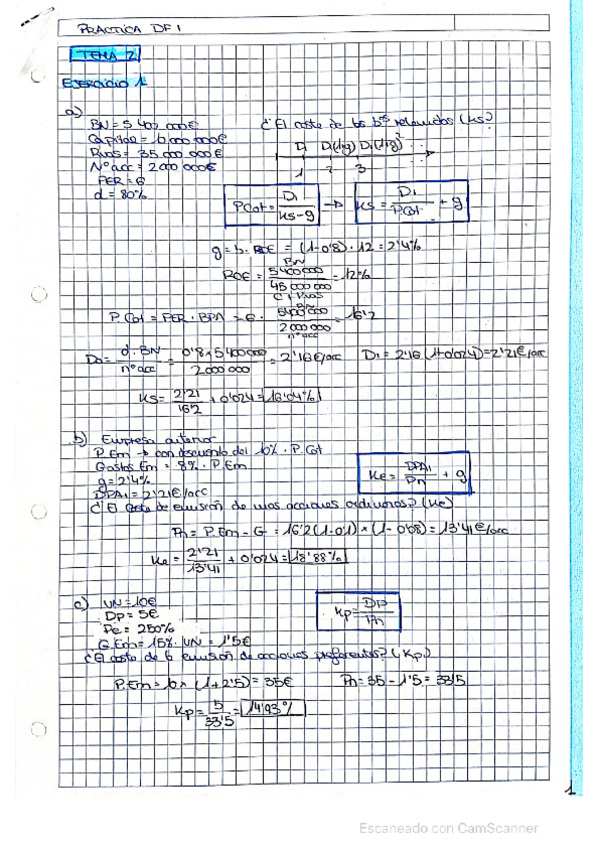 PRACTICA DF1
TEMA 2
EJERCICIO 1
a)
BN = 5 400 000€
Capital = 10 000 000€
Rvas = 35 000 000€
Nº acc = 2 000 000€
PER = 6
d = 80%
¿El coste de los bºs retenidos (Ks)?
D1 D1(1+g) D1(1+g)² ...
1 2 3
P.Cot = D1 / Ks-g → Ks = D1 / P.Cot + g
g = b · ROE = (1-0'8) · 12 = 2'4%
BN
ROE = 5 400 000 / 45 000 000 = 12%
C + Rvas
BN
P.Cot = PER · BPA = 6 · 5400 000 / 2 000 000 = 16'2
nº acc
D0 = d · BN / nº acc = 0'8 x 5 400 000 / 2 000 000 = 2'16€/acc D1 = 2'16 (1+0'024) = 2'21€/acc
Ks = 2'21 / 16'2 + 0'024 = 16'04%
b) Empresa anterior
P.Em → con descuento del 10% · P.Cot
Gastos Em = 8% · P.Em
g = 2'4%
DPA1 = 2'21€/acc
Ke = DPA1 / Pn + g
¿El coste de emisión de unas acciones ordinarias? (Ke)
Pn = P.Em - G = 16'2 (1-0'1) x (1-0'08) = 13'41€/acc
Ke = 2'21 / 13'41 + 0'024 = 18'88%
c) VN = 10€
DP = 5€
Pe = 250%
G.Em = 15% · VN = 1'5€
Kp = DP / Pn
¿El coste de la emisión de acciones preferentes? (Kp)
P.Em = 10 x (1+2'5) = 35€ Pn = 35 - 1'5 = 33'5
Kp = 5 / 33'5 = 14'93%
1
Escaneado con CamScanner